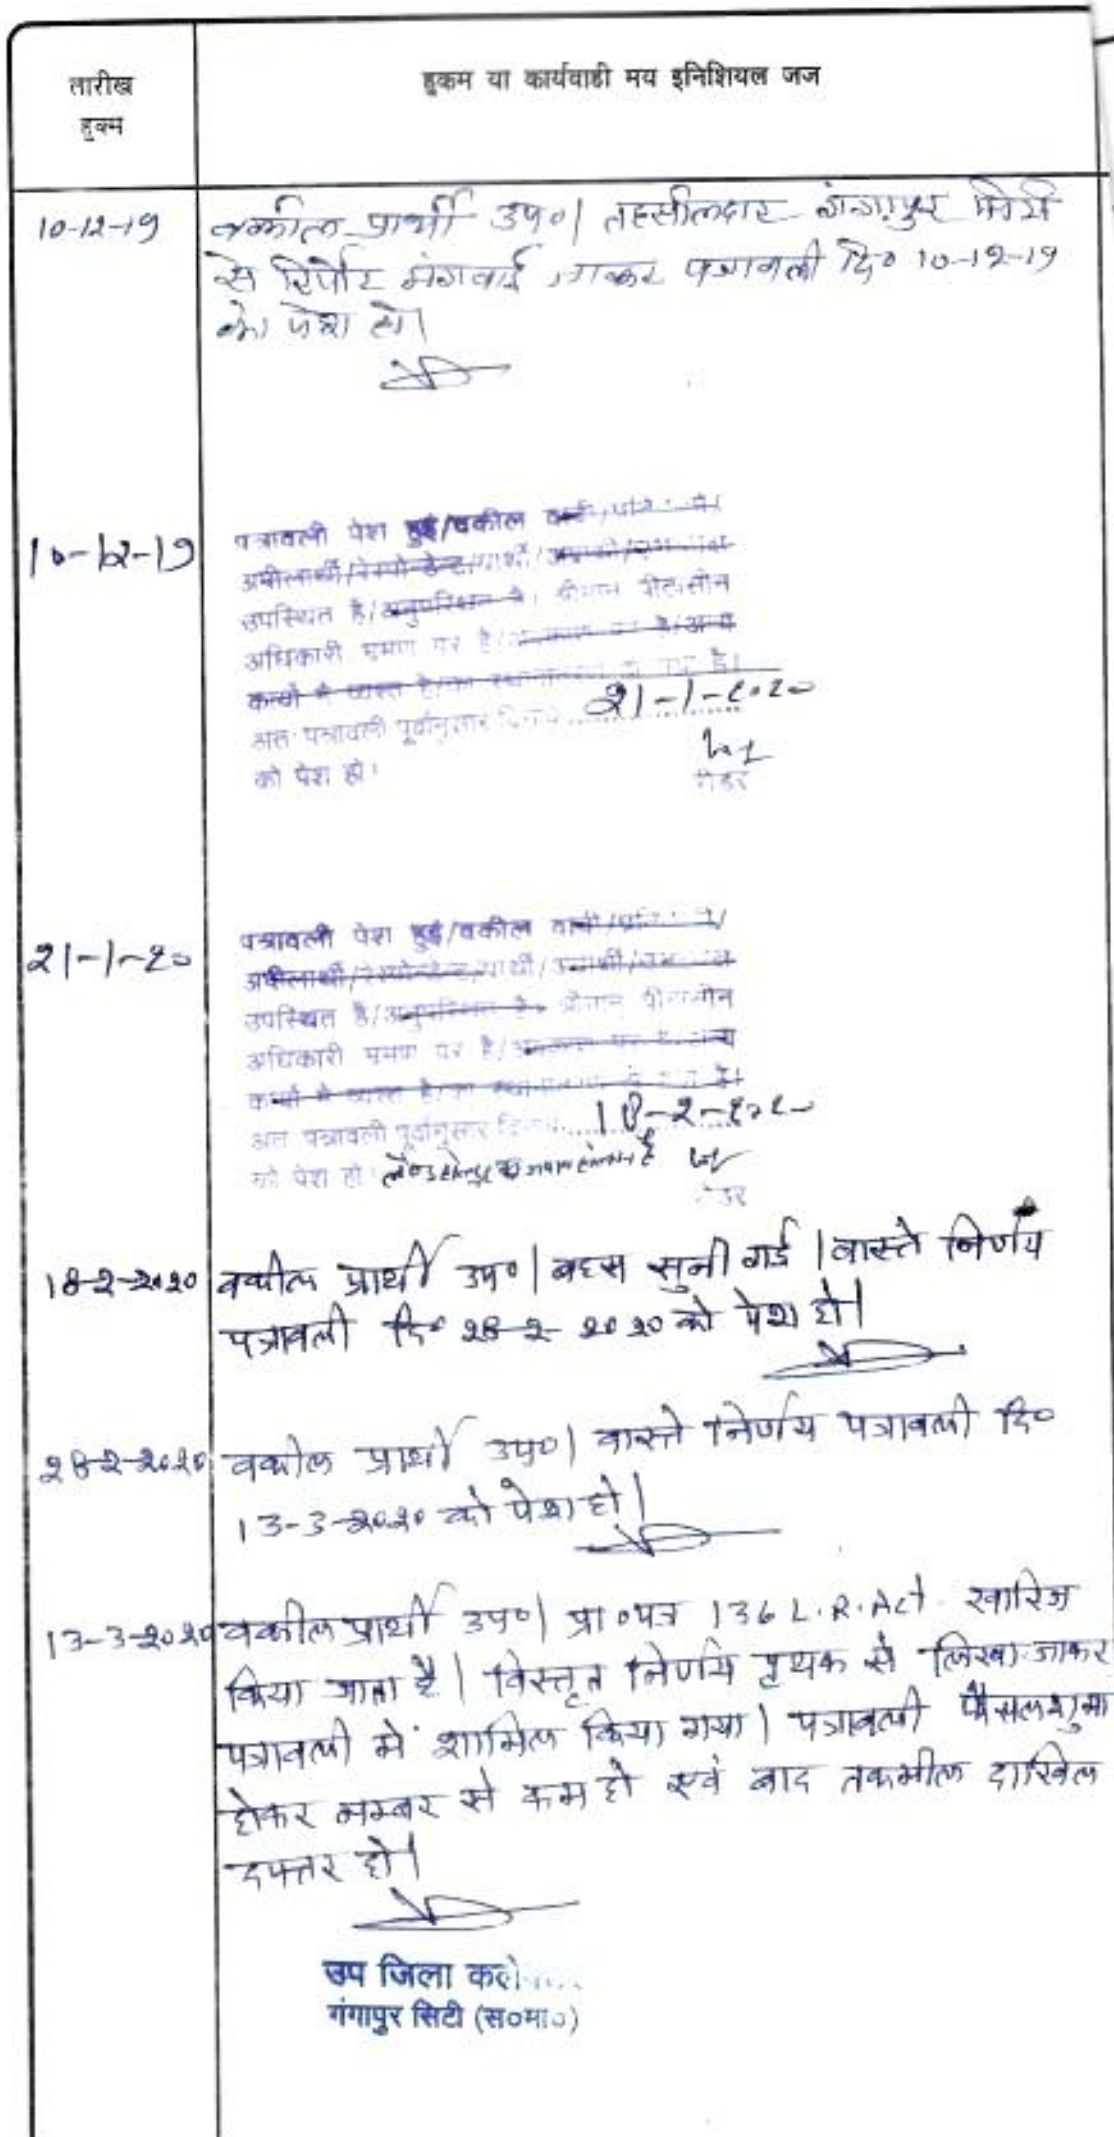 तारीख
हुक्म
हुकम या कार्यवाही मय इनिशियल जज
10-12-19
वकील प्रार्थी उप०| तहसीलदार गंगापुर सिटी
से रिपोर्ट मंगवाई जाकर पत्रावली दि० 10-12-19
को पेश हो|
10-12-19
पत्रावली पेश हुई/वकील
अपीलार्थी/रेस्पोन्डेन्ट/प्रार्थी/
उपस्थित है/अनुपस्थित है। श्रीमान पीठासीन
अधिकारी भ्रमण पर है/अवकाश पर है/अन्य
कार्यो मे व्यस्त है/का स्थानान्तरण हो गया है।
अत पत्रावली पूर्वानुसार दिनांक 21-1-2020
को पेश हो।
रीडर
21-1-20
पत्रावली पेश हुई/वकील वादी/
अपीलार्थी/रेस्पोन्डेन्ट/प्रार्थी/
उपस्थित है/अनुपस्थित है। श्रीमान पीठासीन
अधिकारी भ्रमण पर है/अवकाश पर है/अन्य
कार्यो मे व्यस्त है/का स्थानान्तरण हो गया है।
अत पत्रावली पूर्वानुसार दिनांक 18-2-2020
को पेश हो
18-2-2020
वकील प्रार्थी उप०| बहस सुनी गई| वास्ते निर्णय
पत्रावली दि० 28-2-2020 को पेश हो|
28-2-2020
वकील प्रार्थी उप०| वास्ते निर्णय पत्रावली दि०
13-3-2020 को पेश हो|
13-3-2020
वकील प्रार्थी उप०| प्रा०पत्र 136 L.R.Act. खारिज
किया जाता है| विस्तृत निर्णय पृथक से लिखा जाकर
पत्रावली में शामिल किया गया| पत्रावली फैसलशुमा
होकर नम्बर से कम हो एवं बाद तकमील दाखिल
दफ्तर हो|
उप जिला कले
गंगापुर सिटी (स०मा०)